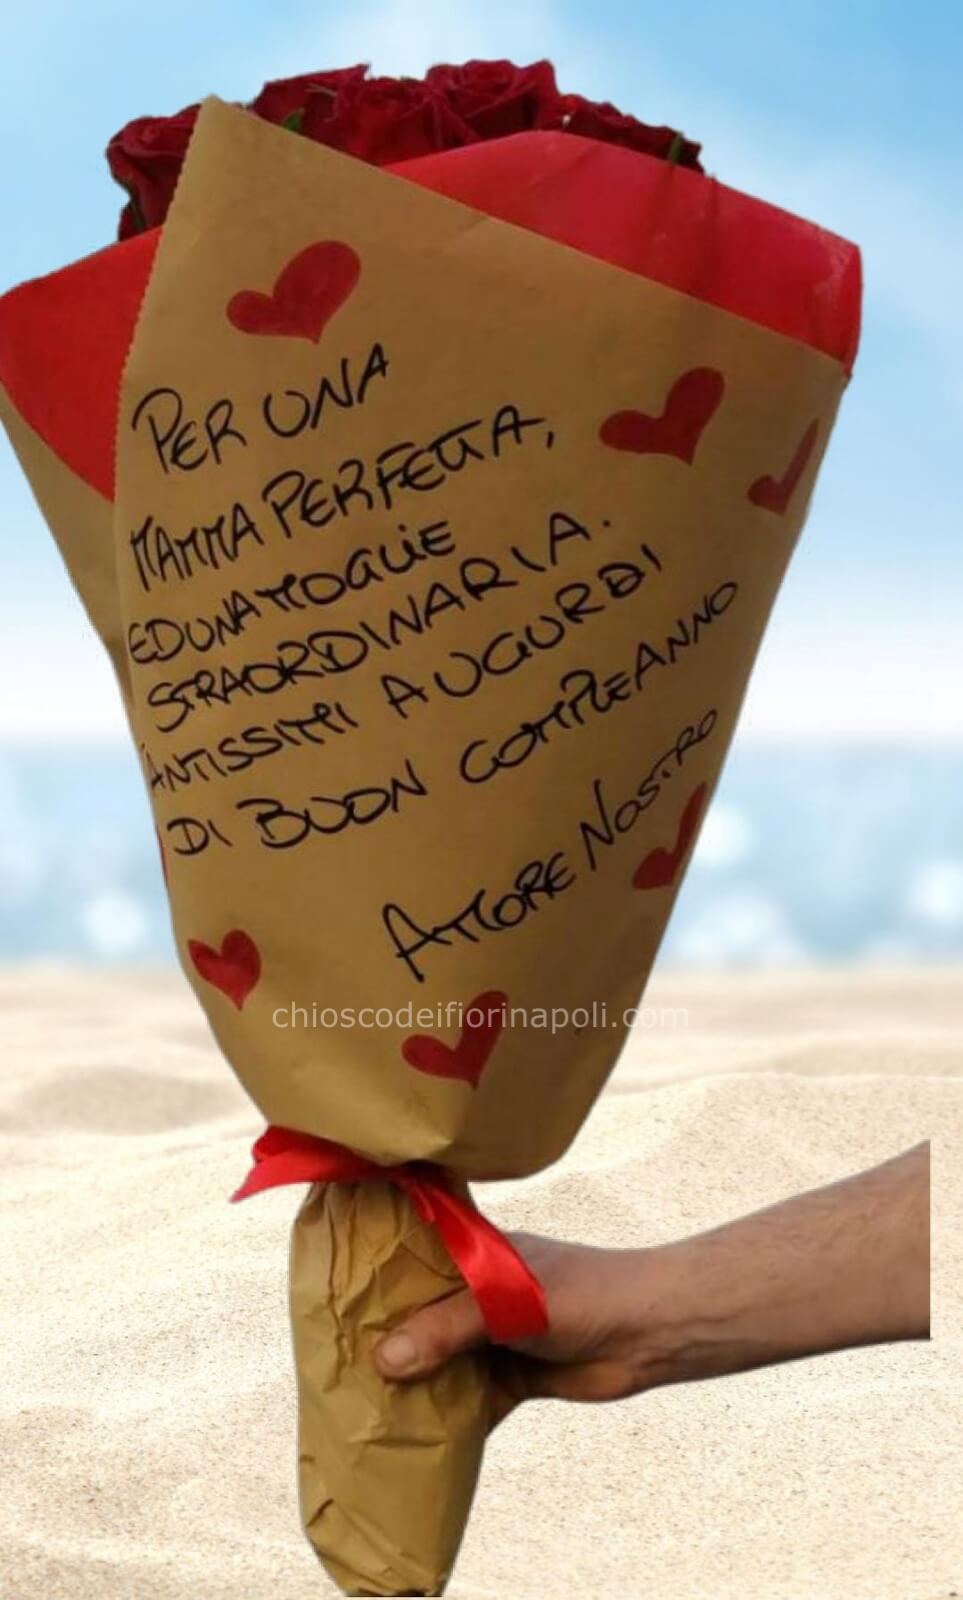 PER UNA
MAMMA PERFETTA,
ED UNA MOGLIE
STRAORDINARIA.
TANTISSIMI AUGURI DI
DI BUON COMPLEANNO
AMORE NOSTRO
chioscodeifiorinapoli.com